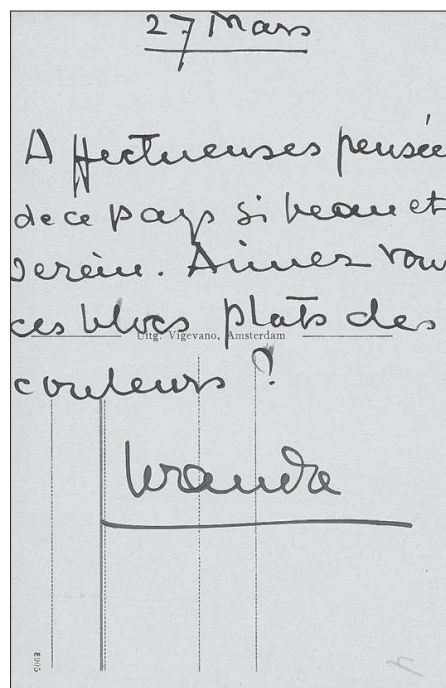 27 Mars
Affectueuses pensée
de ce pays si beau et
serein. Aimez vou
ces blocs plats des
Uitg. Vigevano, Amsterdam
couleurs ?
Wanda
E905
4